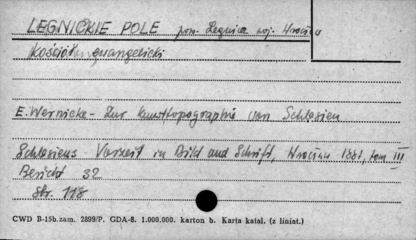 LEGNICKIE POLE pow. Legnica woj. Wrocław
Kościół ewangelicki
E. Wernicke - Zur Kunsttopographie von Schlesien
Schlesiens Vorzeit in Bild und Schrift, Wrocław 1881, tom III
Bericht 32
Str. 118
CWD B-15b. zam. 2899/P. GDA-8. 1.000.000. karton b. Karta katal. (z liniat.)